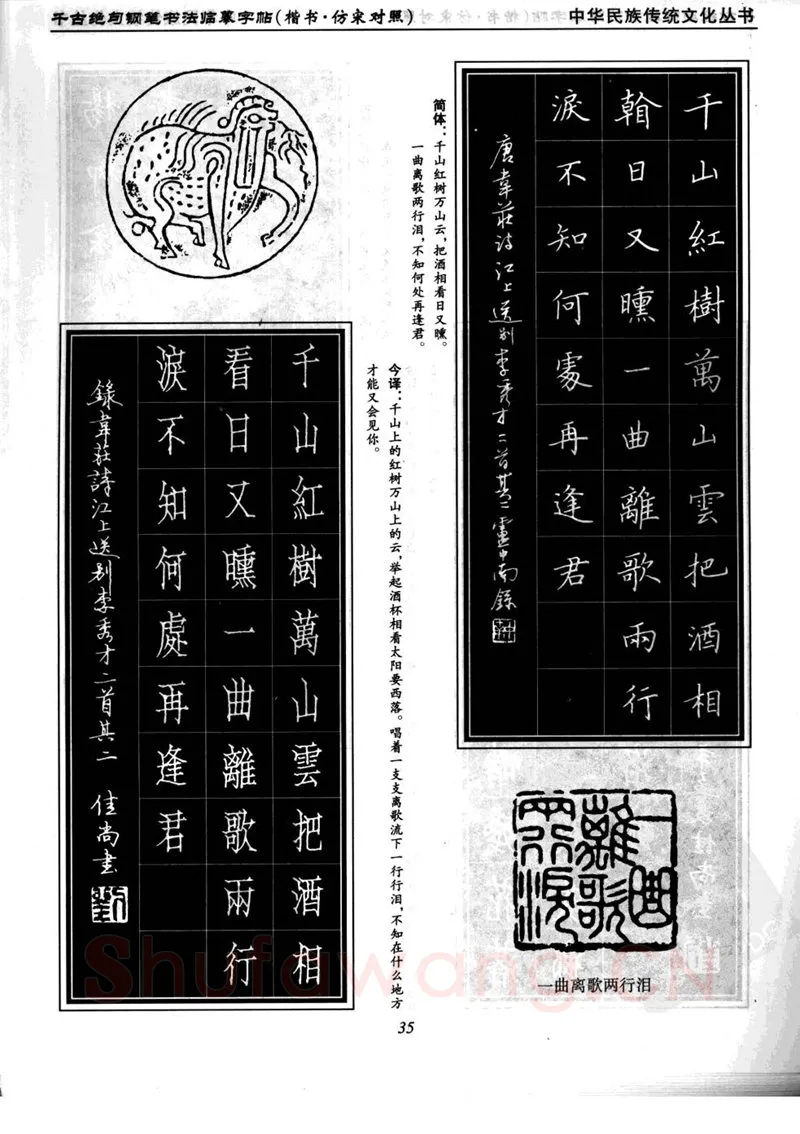 千古绝句钢笔书法临摹字帖(楷书·仿宋对照)
中华民族传统文化丛书
千山紅樹萬山雲把酒相
翰日又曛一曲離歌兩行
淚不知何處再逢君
唐韋莊詩江上送别李秀才二首其二盧中南錄
简体：千山红树万山云，把酒相看日又曛。
一曲离歌两行泪，不知何处再逢君。
今译：千山上的红树万山上的云，举起酒杯相看太阳要西落。唱着一支支离歌流下一行行泪，不知在什么地方
才能又会见你。
千山紅樹萬山雲把酒相
看日又曛一曲離歌兩行
淚不知何處再逢君
錄韋莊詩江上送别李秀才二首其二 佳尚書
劉
一曲
離歌
兩行淚
一曲离歌两行泪
35
Shufawang.CN